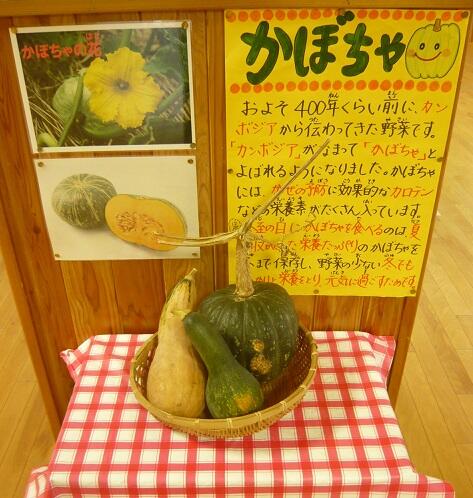 かぼちゃの花
かぼちゃ
およそ400年くらい前に、カン
ボジアから伝わってきた野菜です。
「カンボジア」がなまって「かぼちゃ」と
よばれるようになりました。かぼちゃ
には、かぜの予防に効果的なカロテン
などの栄養素がたくさん入っています。
至の日にかぼちゃを食べるのは、夏
栄養たっぷりのかぼちゃを
まで保存し、野菜の少ない冬でも
栄養をとり、元気に過ごすためです。